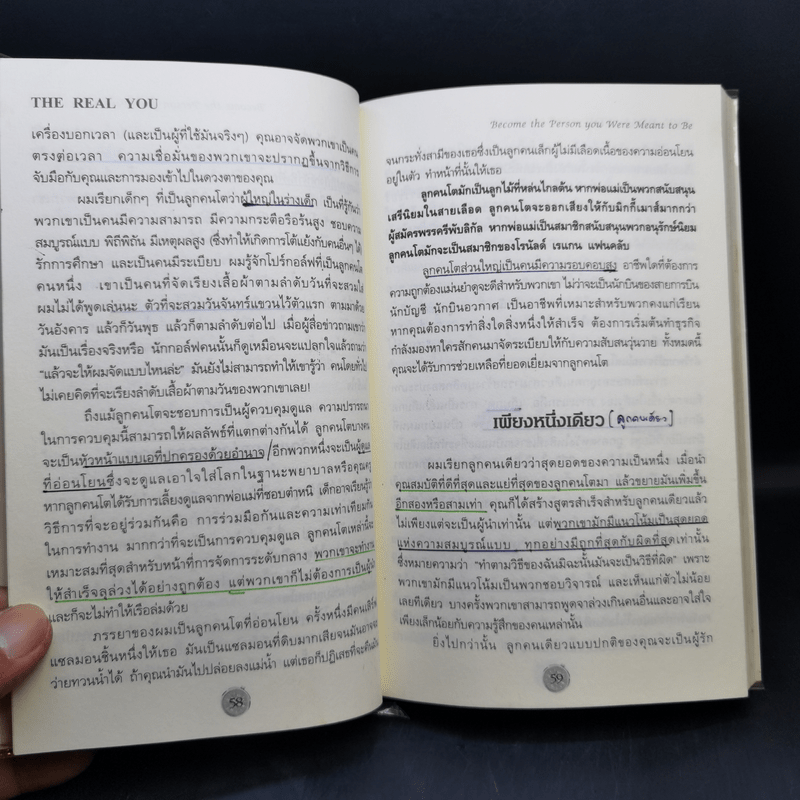 THE REAL YOU
เครื่องบอกเวลา (และเป็นผู้ที่ใช้มันจริงๆ) คุณอาจจัดพวกเขาเป็นคน
ตรงต่อเวลา ความเชื่อมั่นของพวกเขาจะปรากฏขึ้นจากวิธีการ
จับมือกับคุณและการมองเข้าไปในดวงตาของคุณ
ผมเรียกเด็กๆ ที่เป็นลูกคนโตว่าผู้ใหญ่ในร่างเด็ก เป็นที่รู้กันว่า
พวกเขาเป็นคนมีความสามารถ มีความกระตือรือร้นสูง ชอบความ
สมบูรณ์แบบ พิถีพิถัน มีเหตุผลสูง (ซึ่งทำให้เกิดการโต้แย้งกับคนอื่นๆ ได้)
รักการศึกษา และเป็นคนมีระเบียบ ผมรู้จักโปร์กอล์ฟที่เป็นลูกคนโต
คนหนึ่ง เขาเป็นคนที่จัดเรียงเสื้อผ้าตามลำดับวันที่จะสวมใส่
ผมไม่ได้พูดเล่นนะ ตัวที่จะสวมวันจันทร์แขวนไว้ตัวแรก ตามมาด้วย
วันอังคาร แล้วก็วันพุธ แล้วก็ตามลำดับต่อไป เมื่อผู้สื่อข่าวถามเขาว่า
มันเป็นเรื่องจริงหรือ นักกอล์ฟคนนั้นก็ดูเหมือนจะแปลกใจแล้วถามว่า
"แล้วจะให้ผมจัดแบบไหนล่ะ" มันยังไม่สามารถทำให้เขารู้ว่า คนโดยทั่วไป
ไม่เคยคิดที่จะเรียงลำดับเสื้อผ้าตามวันของพวกเขาเลย!
ถึงแม้ลูกคนโตจะชอบการเป็นผู้ควบคุมดูแล ความปรารถนา
ในการควบคุมนี้สามารถให้ผลลัพธ์ที่แตกต่างกันได้ ลูกคนโตบางคน
จะเป็นหัวหน้าแบบเอที่ปกครองด้วยอำนาจ/อีกพวกหนึ่งจะเป็นผู้ดูแล
ที่อ่อนโยนซึ่งจะดูแลเอาใจใส่โลกในฐานะพยาบาลหรือคุณครู
หากลูกคนโตได้รับการเลี้ยงดูแลจากพ่อแม่ที่ชอบตำหนิ เด็กอาจเรียนรู้ว่า
วิธีการที่จะอยู่ร่วมกันคือ การร่วมมือกันและความเท่าเทียมกัน
ในการทำงาน มากกว่าที่จะเป็นการควบคุมดูแล ลูกคนโตเหล่านี้จะ
เหมาะสมที่สุดสำหรับหน้าที่การจัดการระดับกลาง พวกเขาจะทำงาน
ให้สำเร็จลุล่วงได้อย่างถูกต้อง แต่พวกเขาก็ไม่ต้องการเป็นผู้นำ
และก็จะไม่ทำให้เรือล่มด้วย
ภรรยาของผมเป็นลูกคนโตที่อ่อนโยน ครั้งหนึ่งมีคนเสิร์ฟ
แซลมอนชิ้นหนึ่งให้เธอ มันเป็นแซลมอนที่ดิบมากเสียจนมันอาจจะ
ว่ายทวนน้ำได้ ถ้าคุณนำมันไปปล่อยลงแม่น้ำ แต่เธอก็ปฏิเสธที่จะคืนมัน
58
Become the Person you Were Meant to Be
จนกระทั่งสามีของเธอซึ่งเป็นลูกคนเล็กผู้ไม่มีเลือดเนื้อของความอ่อนโยน
อยู่ในตัว ทำหน้าที่นั้นให้เธอ
ลูกคนโตมักเป็นลูกไม้ที่หล่นไกลต้น หากพ่อแม่เป็นพวกสนับสนุน
เสรีนิยมในสายเลือด ลูกคนโตจะออกเสียงให้กับมิกกี้เมาส์มากกว่า
ผู้สมัครพรรครีพับลิกัล หากพ่อแม่เป็นสมาชิกสนับสนุนพวกอนุรักษ์นิยม
ลูกคนโตมักจะเป็นสมาชิกของโรนัลด์ เรแกน แฟนคลับ
ลูกคนโตส่วนใหญ่เป็นคนมีความรอบคอบสูง อาชีพใดที่ต้องการ
ความถูกต้องแม่นยำดูจะดีสำหรับพวกเขา ไม่ว่าจะเป็นนักบินของสายการบิน
นักบัญชี นักบินอวกาศ เป็นอาชีพที่เหมาะสำหรับพวกคงแก่เรียน
หากคุณต้องการทำสิ่งใดสิ่งหนึ่งให้สำเร็จ ต้องการเริ่มต้นทำธุรกิจ
กำลังมองหาใครสักคนมาจัดระเบียบให้กับความสับสนวุ่นวาย ทั้งหมดนี้
คุณจะได้รับการช่วยเหลือที่ยอดเยี่ยมจากลูกคนโต
เพียงหนึ่งเดียว [ลูกคนเดียว]
ผมเรียกลูกคนเดียวว่าสุดยอดของความเป็นหนึ่ง เมื่อนำ
คุณสมบัติที่ดีที่สุดและแย่ที่สุดของลูกคนโตมา แล้วขยายมันเพิ่มขึ้น
อีกสองหรือสามเท่า คุณก็ได้สร้างสูตรสำเร็จสำหรับลูกคนเดียวแล้ว
ไม่เพียงแต่จะเป็นผู้นำเท่านั้น แต่พวกเขามักมีแนวโน้มเป็นสุดยอด
แห่งความสมบูรณ์แบบ ทุกอย่างมีถูกที่สุดกับผิดที่สุดเท่านั้น
ซึ่งหมายความว่า "ทำตามวิธีของฉันมิฉะนั้นมันจะเป็นวิธีที่ผิด" เพราะ
พวกเขามักมีแนวโน้มเป็นพวกชอบวิจารณ์ และเห็นแก่ตัวไม่น้อย
เลยทีเดียว บางครั้งพวกเขาสามารถพูดจาล่วงเกินคนอื่นและอาจใส่ใจ
เพียงเล็กน้อยกับความรู้สึกของคนเหล่านั้น
ยิ่งไปกว่านั้น ลูกคนเดียวแบบปกติของคุณจะเป็นผู้รัก
59